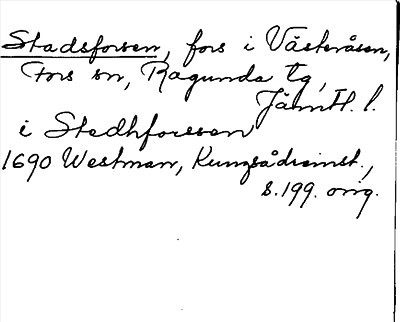 Stadsforsen, fors i Västeråsen,
Fors sn, Ragunda tg,
Jämtl. l.
i Stedhforssen
1690 Westman, Kungsådreinst.,
s.199. orig.